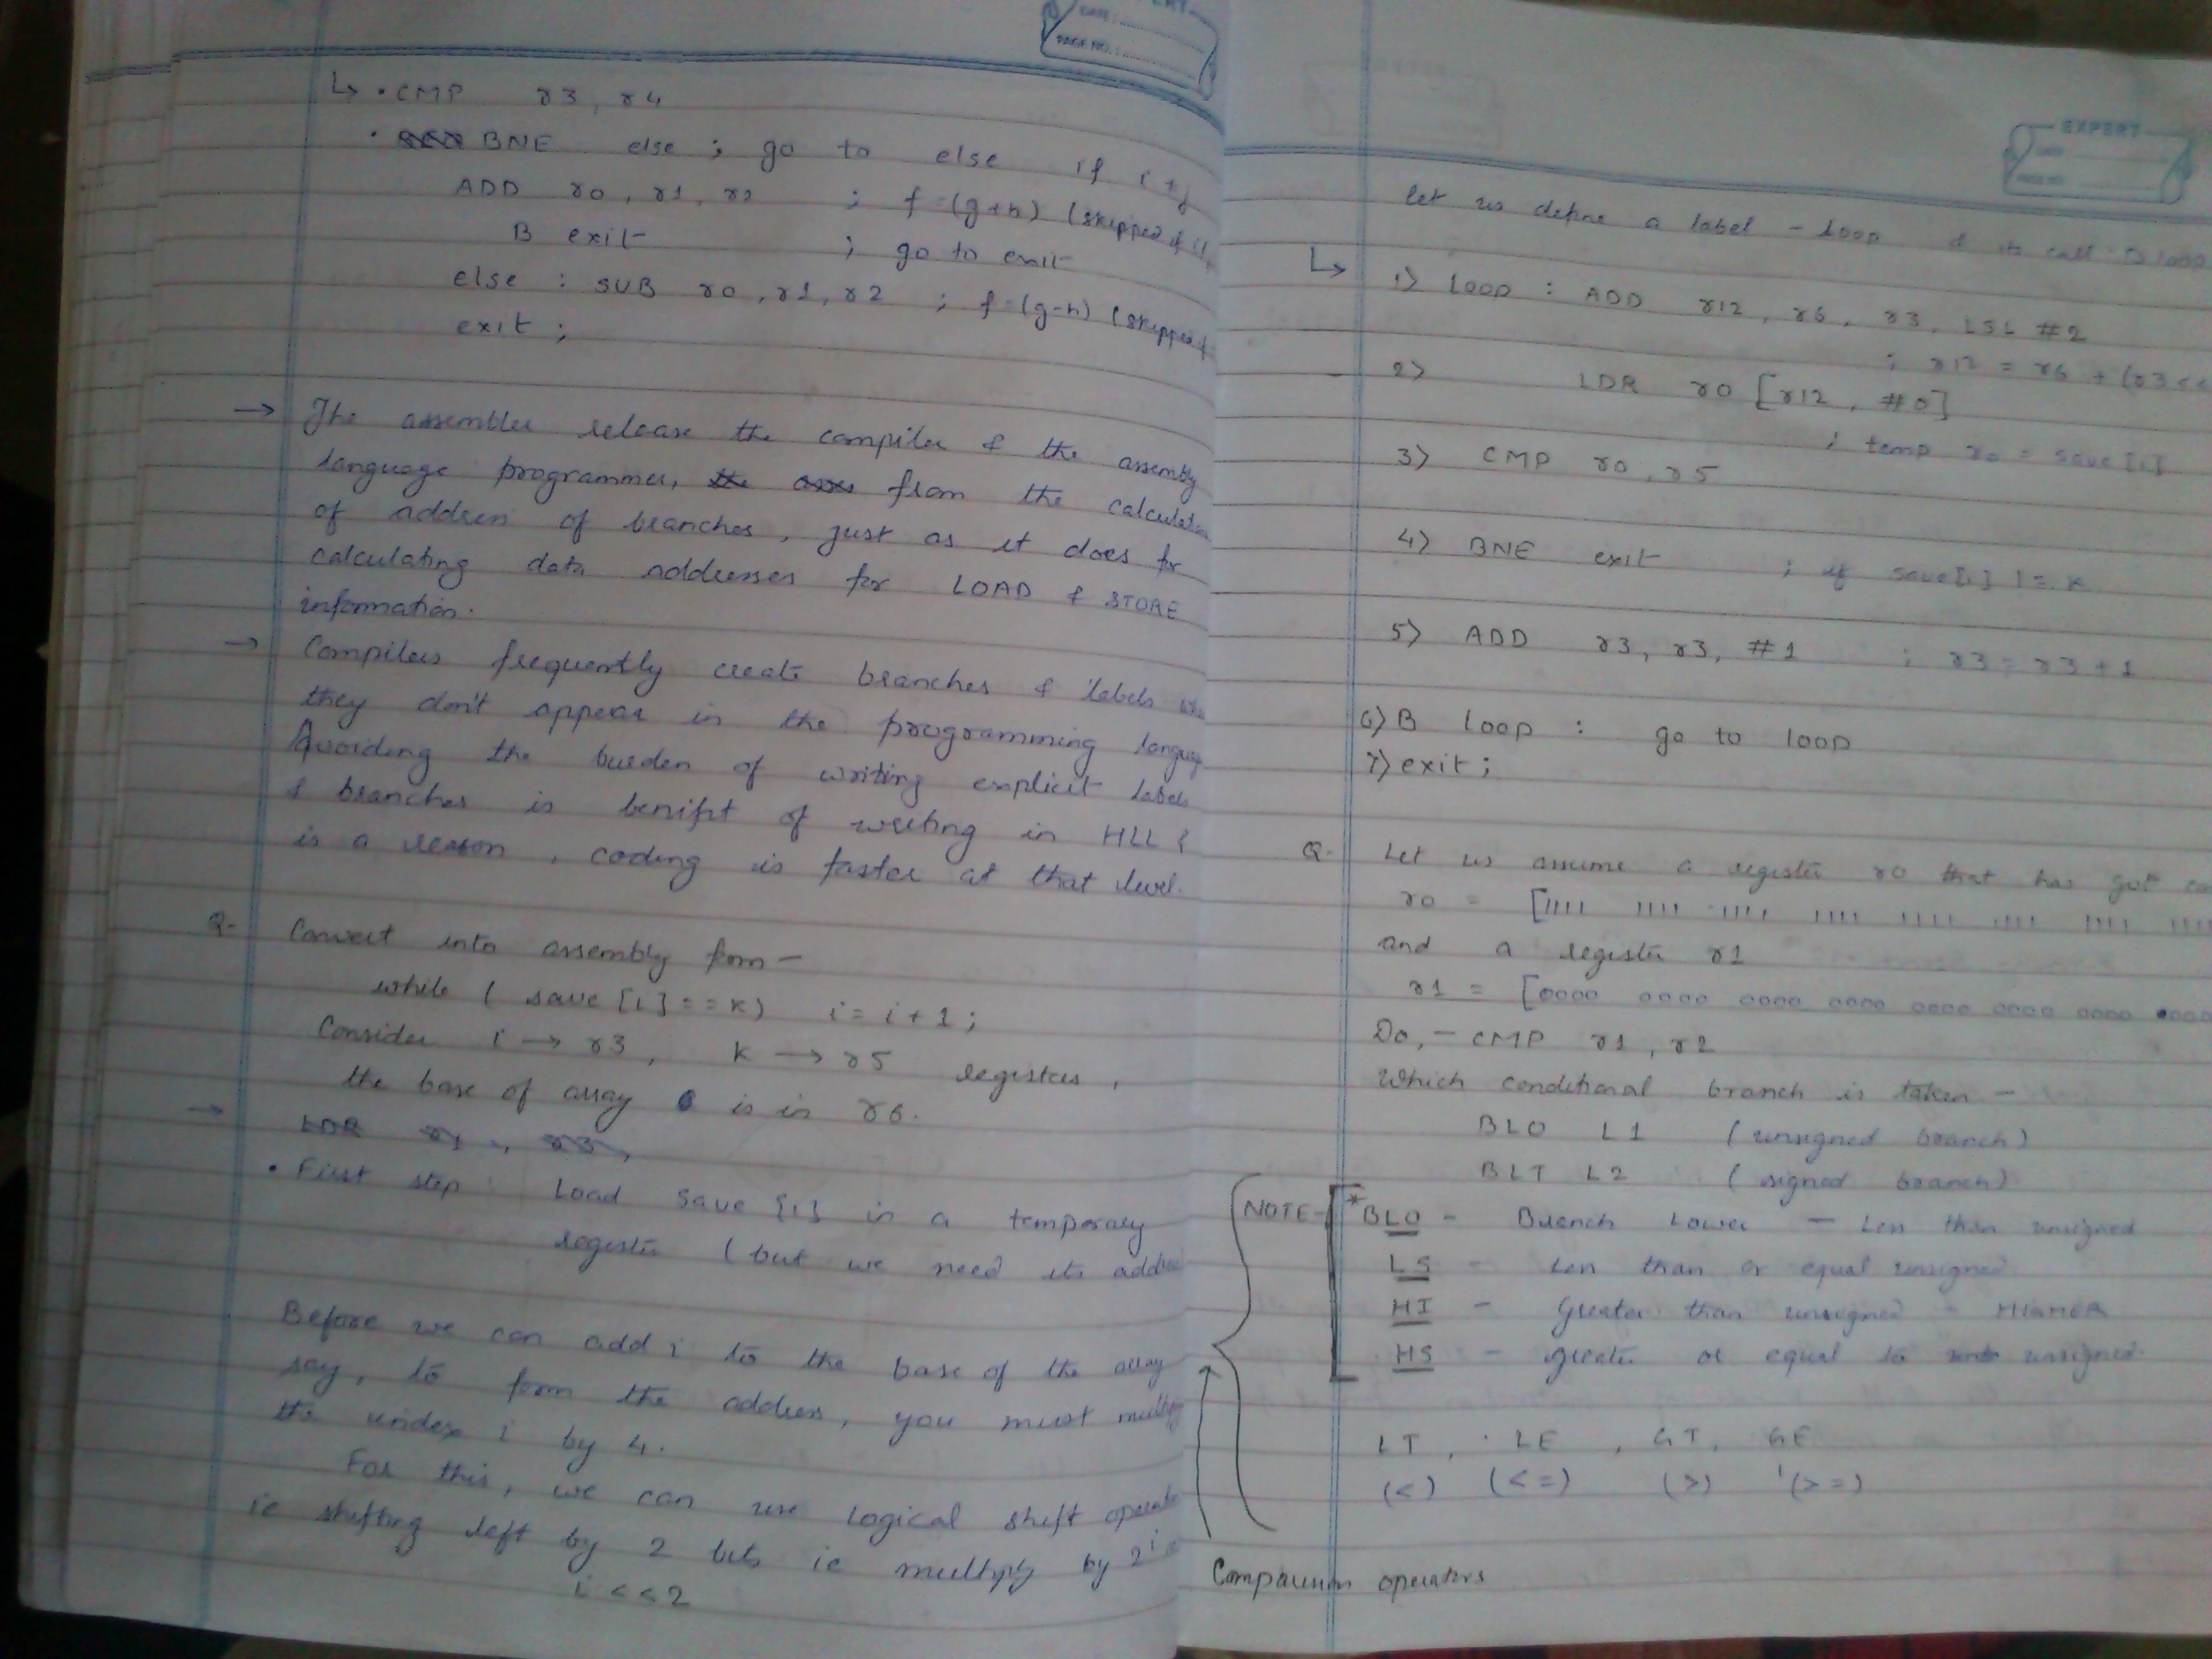 DATE :
PAGE NO. :
↳ • CMP r3, r4
• BNE else ; go to else if i ≠ j
ADD r0, r1, r2 ; f = (g+h) (skipped if
B exit ; go to exit
else : SUB r0, r1, r2 ; f = (g-h) (skipped
exit ;
→ The assembler release the compiler & the assembly
language programmer, from the
of address of branches, just as it does for
calculating data addresses for LOAD & STORE
information.
→ Compilers frequently create branches & labels
they don't appear in the programming
Avoiding the burden of writing explicit labels
& branches is benifit of writing in HLL &
is a reason, coding is faster at that level.
Q- Convert into assembly form -
while ( save [i] == k) i = i + 1 ;
Consider i → r3, k → r5 registers,
the base of array is in r6.
→ LDR r1, r3,
• First step : Load save [i] in a temporary
register (but we need its
Before we can add i to the base of the array
say, to form the address, you must multiply
the index i by 4.
For this, we can use logical shift
ie shifting left by 2 bits ie multiply by 2
i << 2
EXPERT
DATE
PAGE NO.
let us define a label - loop & its call is loop
↳ 1) Loop : ADD r12, r6, r3, LSL #2
; r12 = r6 + (r3 <<
2) LDR r0 [r12, #0]
; temp r0 = save [i]
3) CMP r0, r5
4) BNE exit ; if save[i] != k
5) ADD r3, r3, #1 ; r3 = r3 + 1
6) B loop : go to loop
7) exit ;
Q- Let us assume a register r0 that has got
r0 = [1111 1111 1111 1111 1111 1111 1111 1111
and a register r1
r1 = [0000 0000 0000 0000 0000 0000 0000
Do, - CMP r1, r2
Which conditional branch is taken -
BLO L1 (unsigned branch)
BLT L2 (signed branch)
NOTE - * BLO - Branch Lower - Less than unsigned
LS - Less than or equal unsigned
HI - Greater than unsigned - HIGHER
HS - greater or equal to unsigned
LT, LE, GT, GE
(<) (<=) (>) (>=)
Comparison operators